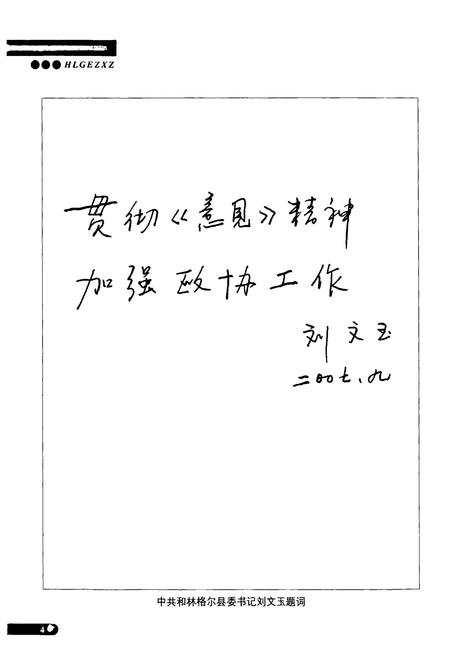 HLGEZXZ
贯彻《意见》精神
加强政协工作
刘文玉
二00七、九
中共和林格尔县委书记刘文玉题词
4